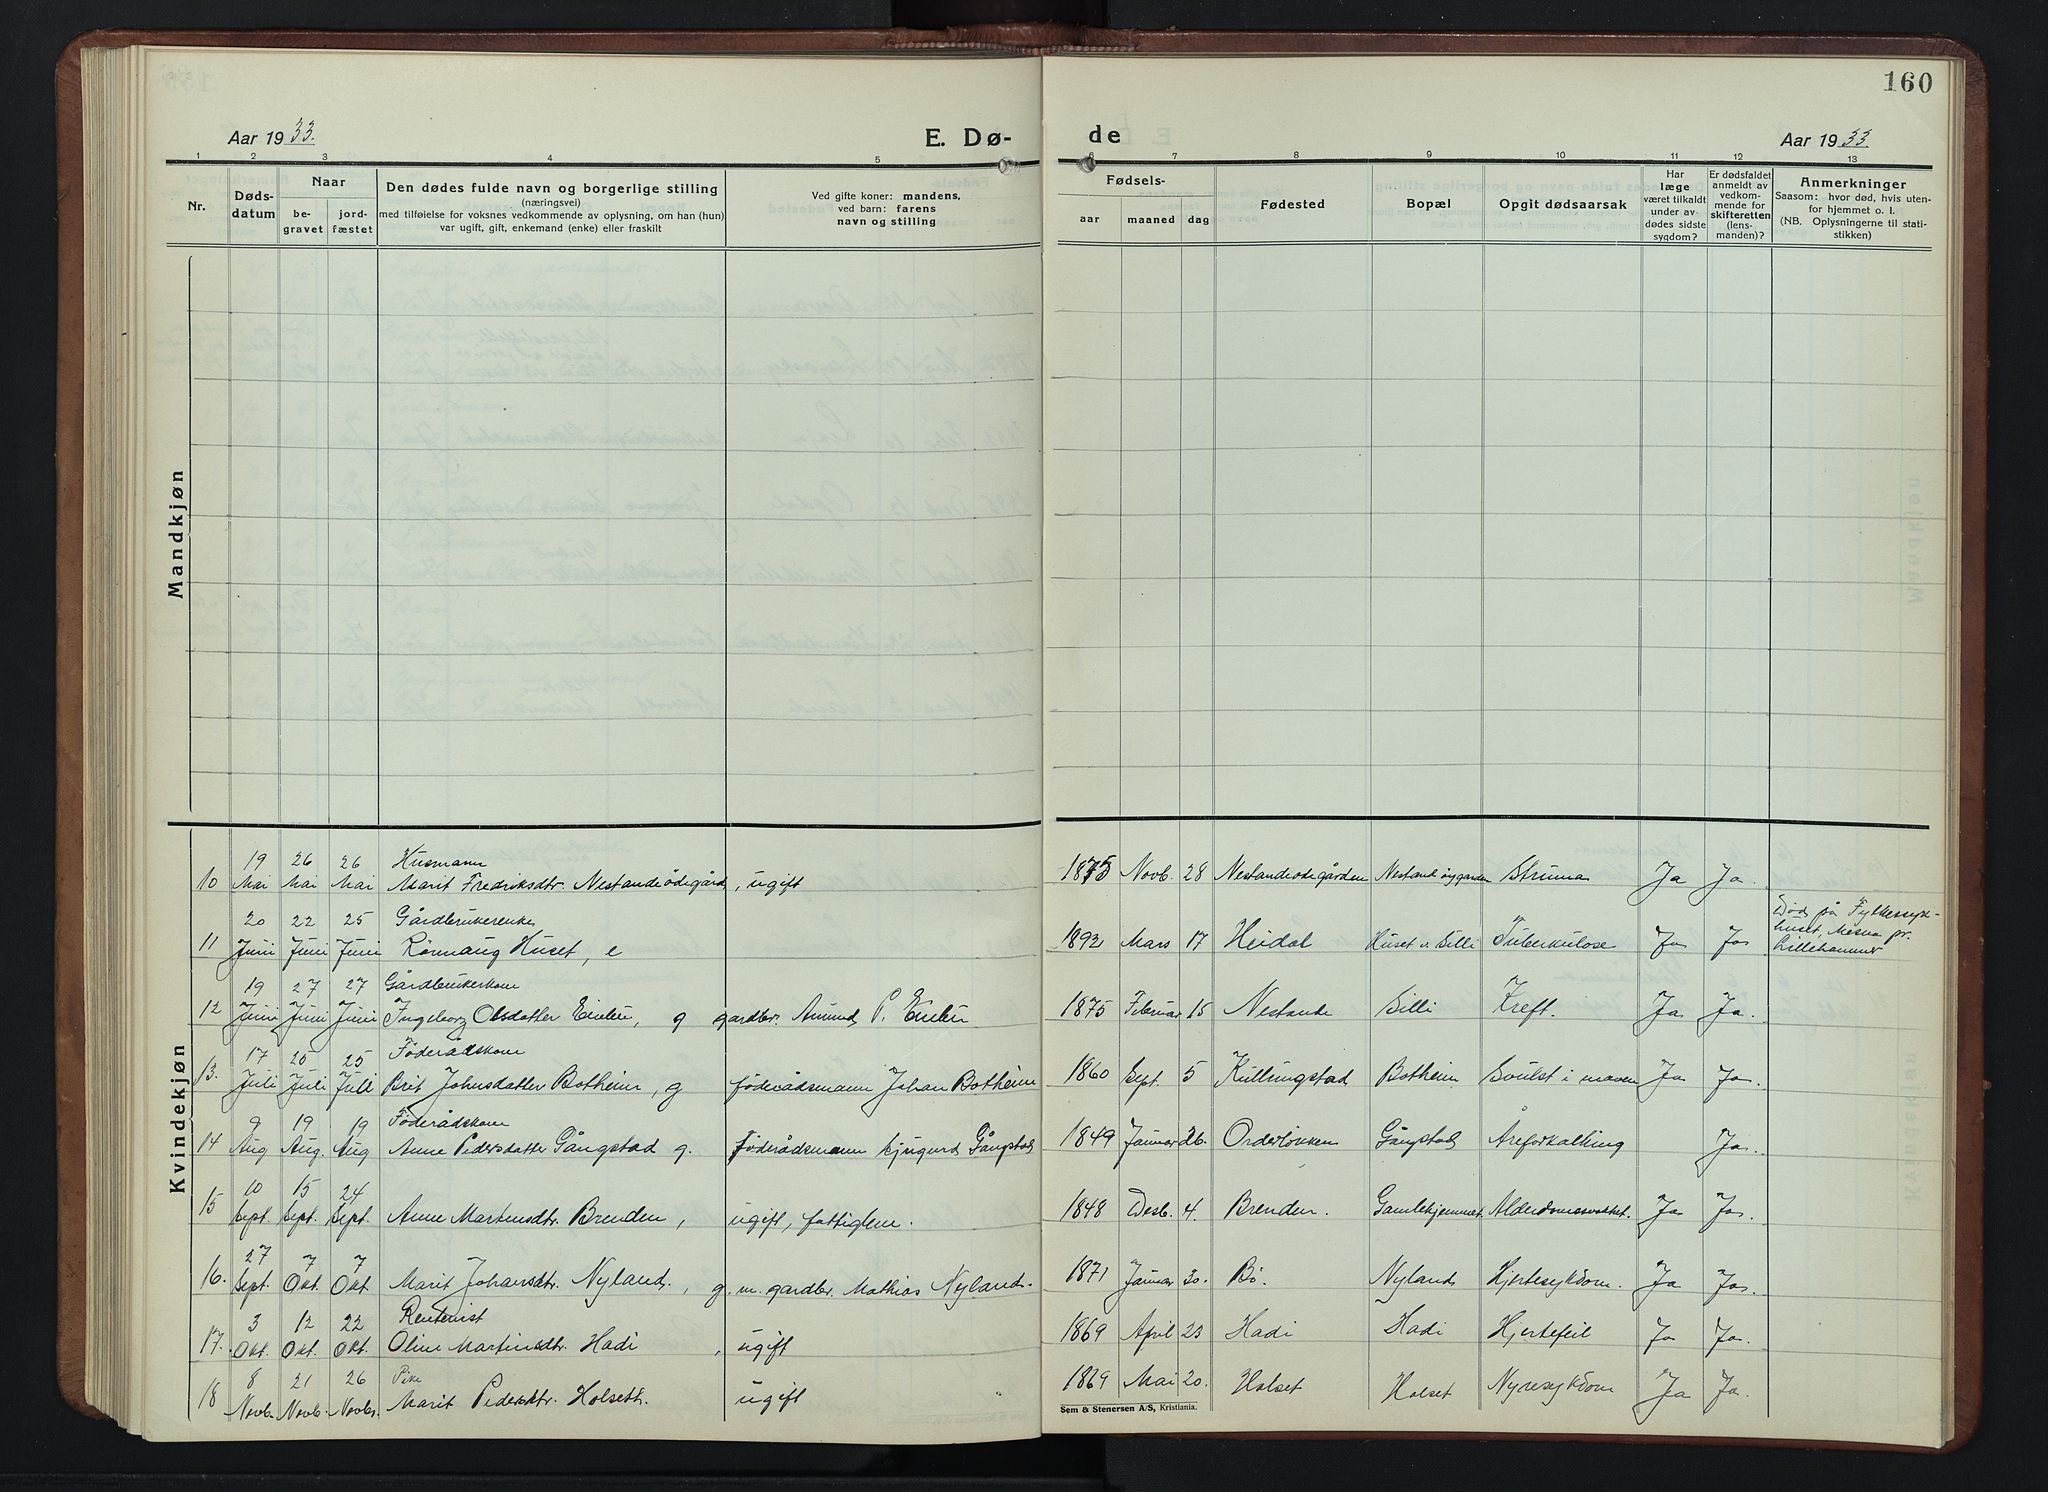 160
Aar 1933.
E. Dø-
de
Aar 1933.
1 2 3 4 5
6 7 8 9 10 11 12 13
Nr.
Døds-
datum
Naar
be-
gravet
jord-
fæstet
Den dødes fulde navn og borgerlige stilling
(næringsvei)
med tilføielse for voksnes vedkommende av oplysning, om han (hun)
var ugift, gift, enkemand (enke) eller fraskilt
Ved gifte koner: mandens,
ved barn: farens
navn og stilling
Fødsels-
aar maaned dag
Fødested
Bopæl
Opgit dødsaarsak
Har
læge
været tilkaldt
under av-
dødes sidste
sygdom?
Er dødsfaldet
anmeldt av
vedkom-
mende for
skifteretten
(lens-
manden)?
Anmerkninger
Saasom: hvor død, hvis uten-
for hjemmet o. l.
(NB. Oplysningerne til stati-
stikken)
Mandkjøn
Kvindekjøn
19 26 26 Husmann
10 Mai Mai Mai Marit Fredriksdtr. Nestandeödegård, ugift 1875 Novb. 28 Nestandeodegården Struma Ja Ja.
20 22 25 Gårdbrukerenke
11 Juni Juni Juni Rönnaug Huset, e 1892 Mars 17 Heidal Huset v. Silli Tuberkulose Ja Ja
Död på Fylkessyk-
huset, Mesna pr.
Lillehammer
19 27 27 Gårdbrukerkone
12 Juni Juni Juni Ingeborg Olsdatter, g gardbr. Amund P. 1875 Februar 15 Nestande Silli Kreft. Ja Ja.
17 25 25 Föderådskone
13. Juli Juli Juli Brit Johnsdatter Botheim, g föderådsmann Johan Botheim 1860 Sept. 5 Kullingstad Botheim Svulst i maven Ja Ja.
9 19 19 Föderådskone
14 Aug Aug. Aug Anne Pedersdatter Gångstad g. Föderådsmann Gångstad 1849 Januar 26. Orderlökken Gångstad Åreforkalkning Ja.
10 15 24
15 Sept. Sept. Sept. Anne Martensdtr. Brenden, ugift, fattiglem. 1848 Desb. 4. Brenden. Gamlehjemmet Alderdomssvakket. Ja Ja.
27 7 7
16. Sept. Okt. Okt. Marit Johansdtr. Nyland, g. m. gardbr. Mathias Nyland. 1871 Januar 30. Bö. Nyland Hjertesykdom. Ja Ja.
3 12 22 Rentenist
17. Okt. Okt. Okt. Oline Martinsdtr. Hadi, ugift 1869 April 23 Hadi Hadi Hjertefeil Ja Ja.
8 21 26 Pike
18 Novb. Novb. Novbr. Marit Pedersdtr. Holseth. ugift 1869 Mai 20. Holset Holset Nyresykdom Ja Ja.
Sem & Stenersen A/S, Kristiania.